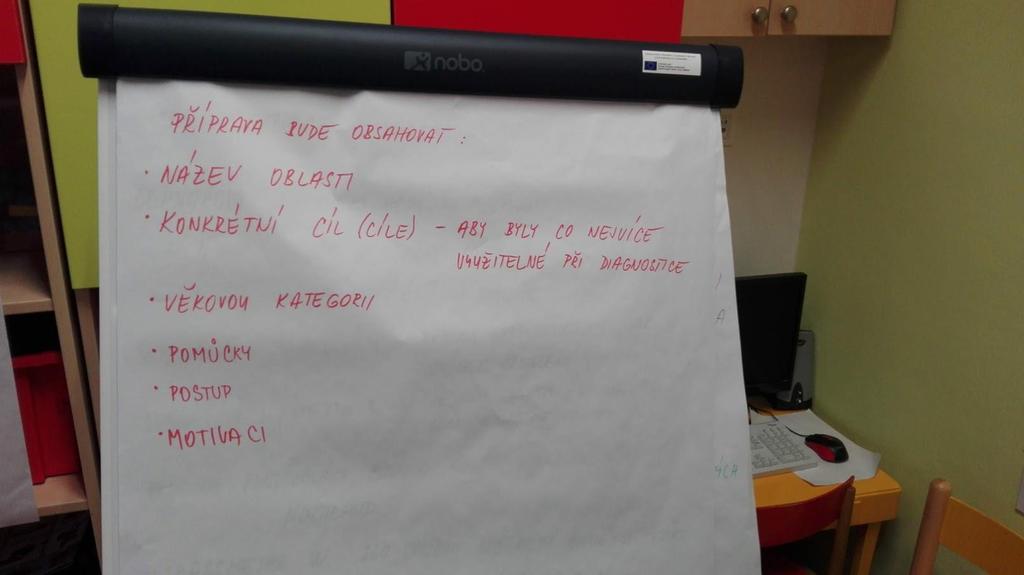 nobo
PŘÍPRAVA BUDE OBSAHOVAT :
• NÁZEV OBLASTI
• KONKRÉTNÍ CÍL (CÍLE) – ABY BYLY CO NEJVÍCE
VYUŽITELNÉ PŘI DIAGNOSTICE
• VĚKOVOU KATEGORII
• POMŮCKY
• POSTUP
• MOTIVACI